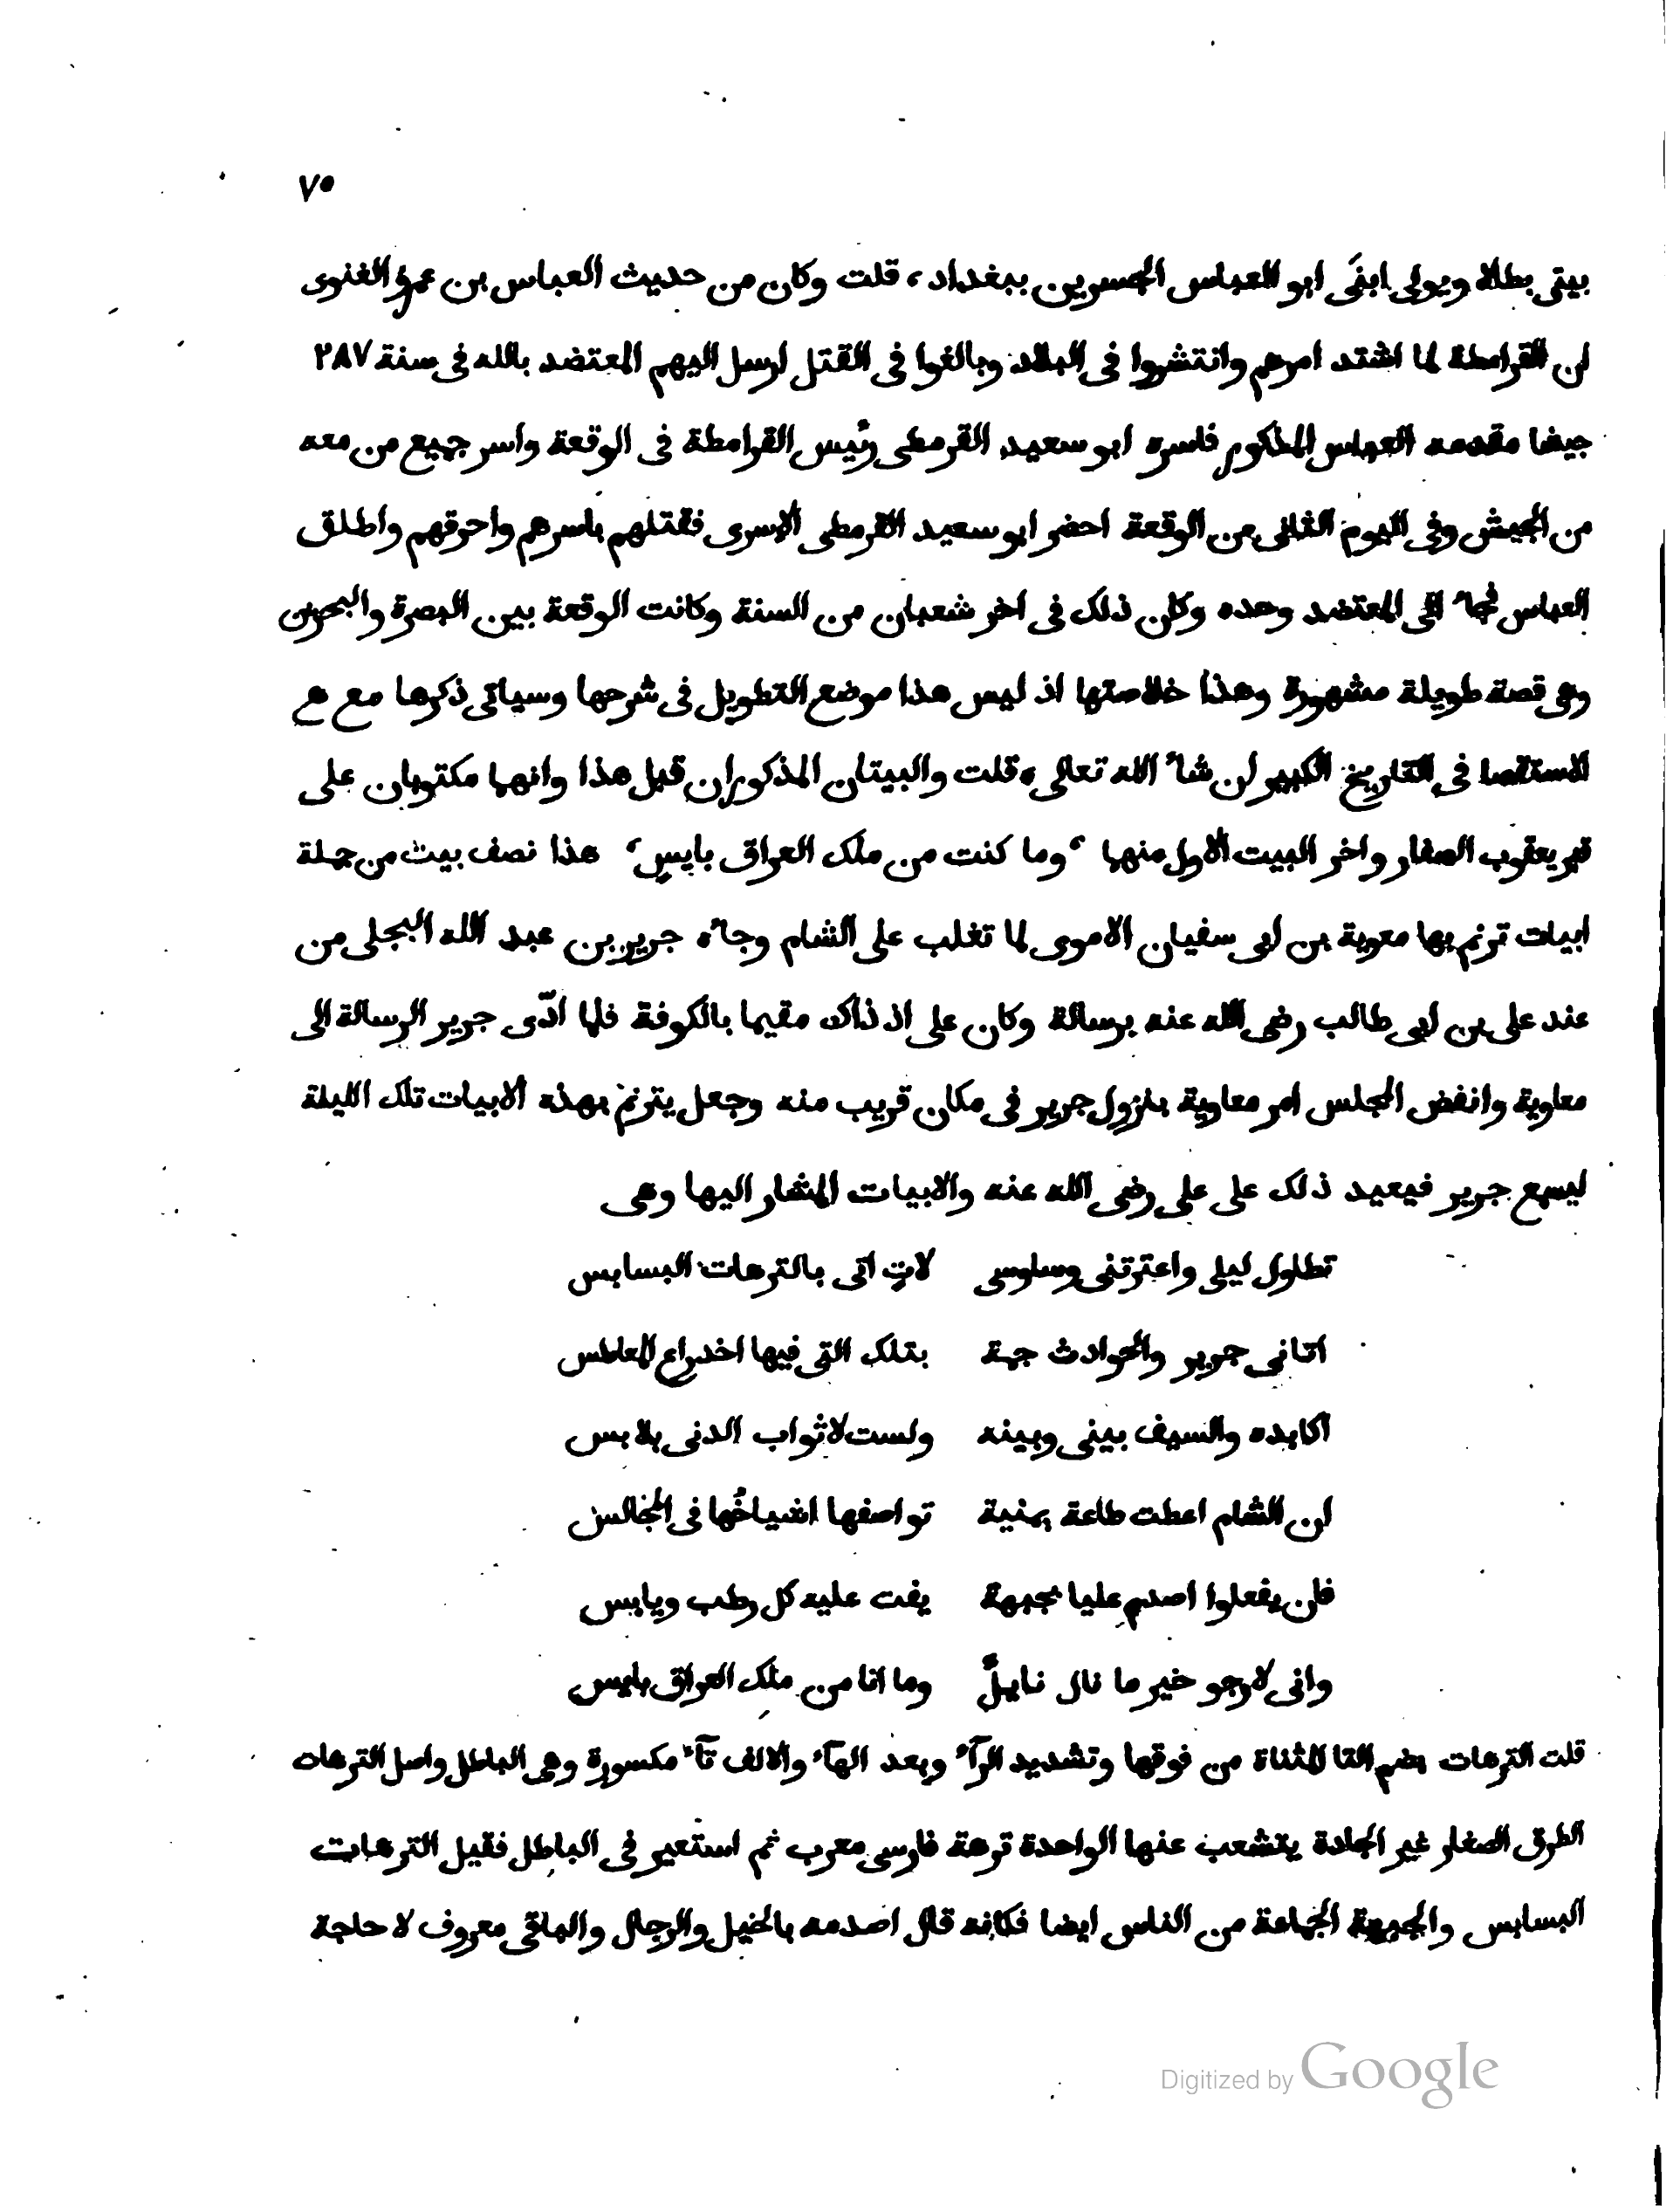 ٧٥
بيتى بطالا ويولى ابنَى ابو العباس الجسرين ببغداد، قلت وكان من حديث العباس بن عمرو الغنوى
ان القرامطة لما اشتد امرهم وانتشروا فى البلاد وبالغوا فى القتل ارسل اليهم المعتضد بالله فى سنة ٢٨٧
جيشا مقدمه العباس المذكور فاسره ابو سعيد القرمطى رئيس القرامطة فى الوقعة واسر جميع من معه
من الجيش وفى اليوم الثانى من الوقعة احضر ابو سعيد القرمطى الاسرى فقتلهم باسرهم واحرقهم واطلق
العباس فجاءَ الى المعتضد وحده وكان ذلك فى اخر شعبان من السنة وكانت الوقعة بين البصرة والبحرين
وهى قصة طويلة مشهورة وهذا خلاصتها اذ ليس هذا موضع التطويل فى شرحها وسياتى ذكرها مع ع
الاستقصا فى التاريخ الكبير ان شاءَ الله تعالى، قلت والبيتان المذكوران قبل هذا وانهما مكتوبان على
قبر يعقوب الصفار واخر البيت الاول منهما ، وما كنت من ملك العراق بايسِ، هذا نصف بيت من جملة
ابيات ترنم بها معوية بن ابى سفيان الاموى لما تغلب على الشام وجاءه جرير بن عبد الله البجلى من
عند على بن ابى طالب رضى الله عنه برسالة وكان على اذ ذاك مقيما بالكوفة فلما ادّى جرير الرسالة الى
معاوية وانفض المجلس امر معاوية بنزول جرير فى مكان قريب منه وجعل يترنم بهذه الابيات تلك الليلة
ليسمع جرير فيعيد ذلك على على رضى الله عنه والابيات المشار اليها وهى
تطاول ليلى واعترتنى وساوسى لاتٍ اتى بالترهات البسابس
اتانى جرير والحوادث جمة بتلك التى فيها اخدراع المعاطس
اكابده والسيف بينى وبينه ولست لاثواب الدنى بلابس
ان الشام اعطت طاعة يمنية تواصفها اشياخُها فى المجالس
فان يفعلوا اصدم عليا بجبهة يفت عليه كل رطب ويابس
وانى لارجو خير ما نال نايلٌ وما انا من ملك العراق بايس
قلت الترهات بضم التا المثناة من فوقها وتشديد الرآءَ وبعد الهآءَ والالف تآءَ مكسورة وهى الباطل واصل الترهات
الطرق الصغار غير الجادة يتشعب عنها الواحدة ترهة فارسى معرب ثم استعير فى الباطل فقيل الترهات
البسابس والجبهة الجماعة من الناس ايضا فكانه قال اصدمه بالخيل والرجال والباقى معروف لا حاجة
Digitized by Google